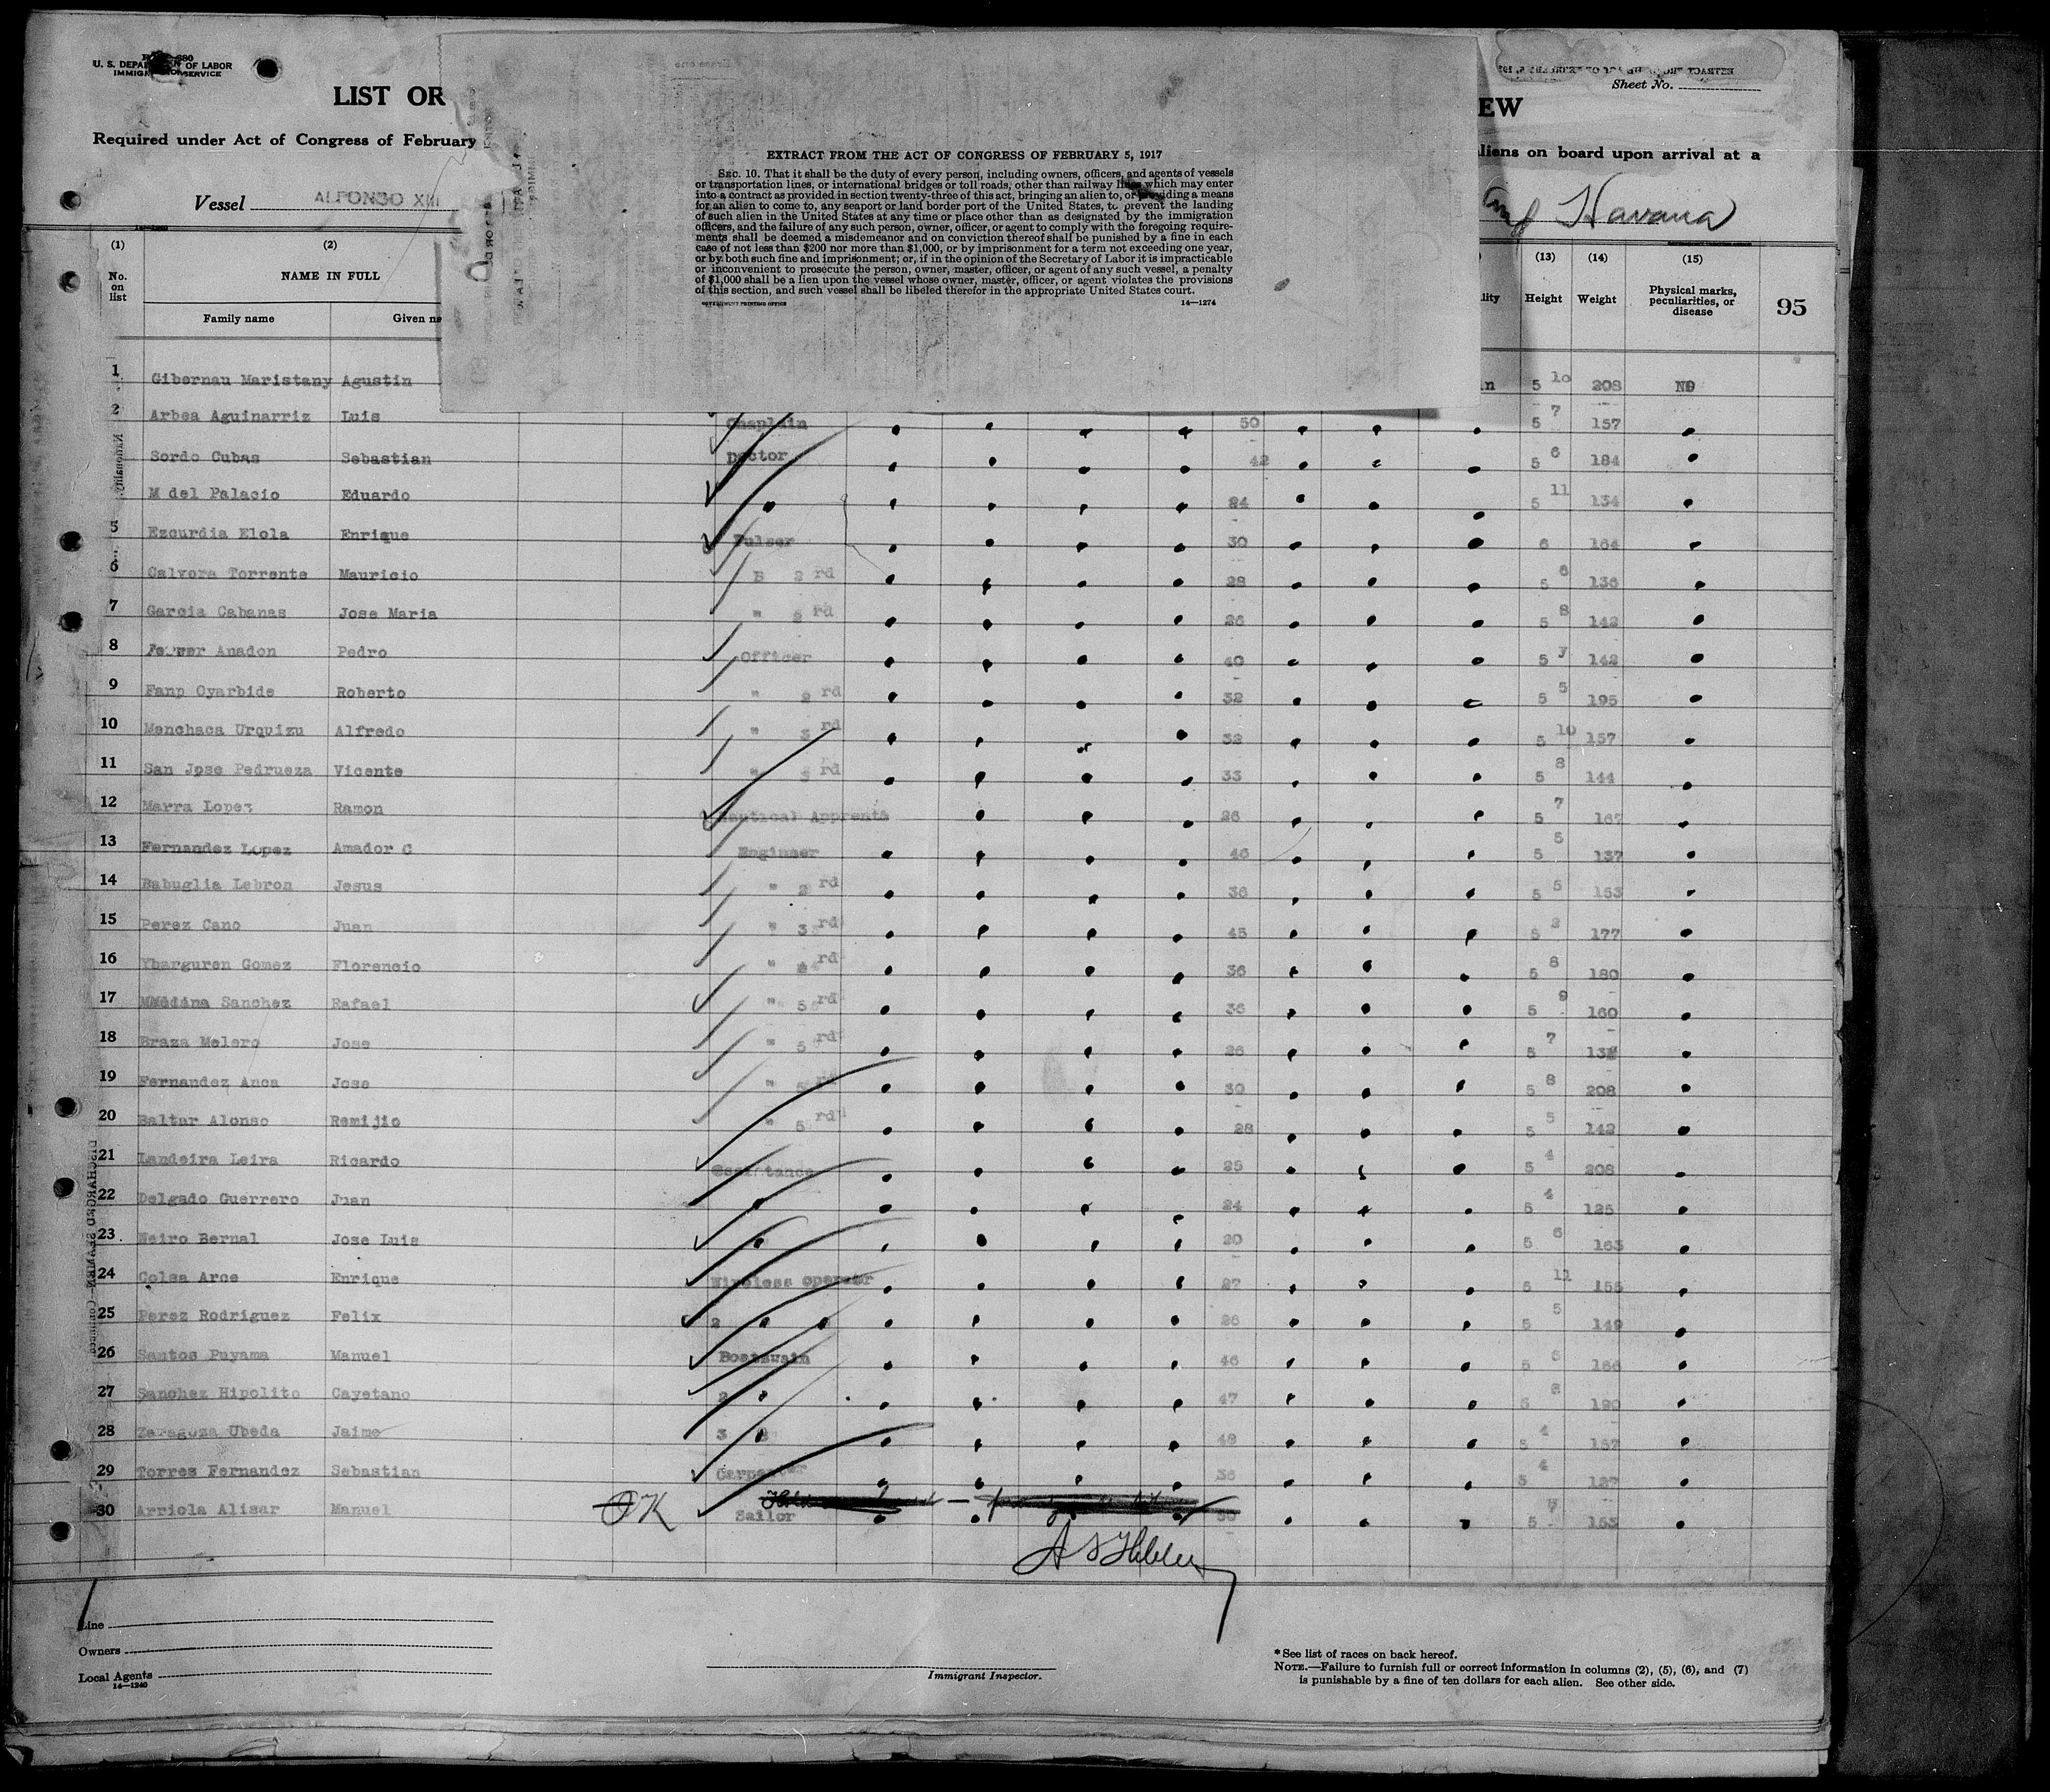 U. S. DEPARTMENT OF LABOR
IMMIGRATION SERVICE
Sheet No.
LIST OR
EW
Required under Act of Congress of February
aliens on board upon arrival at a
Vessel ALFONSO XIII
Havana
EXTRACT FROM THE ACT OF CONGRESS OF FEBRUARY 5, 1917
SEC. 10. That it shall be the duty of every person, including owners, officers, and agents of vessels
or transportation lines, or international bridges or toll roads, other than railway lines which may enter
into a contract as provided in section twenty-three of this act, bringing an alien to, or providing a means
for an alien to come to, any seaport or land border port of the United States, to prevent the landing
of such alien in the United States at any time or place other than as designated by the immigration
officers, and the failure of any such person, owner, officer, or agent to comply with the foregoing require-
ments shall be deemed a misdemeanor and on conviction thereof shall be punished by a fine in each
case of not less than $200 nor more than $1,000, or by imprisonment for a term not exceeding one year,
or by both such fine and imprisonment; or, if in the opinion of the Secretary of Labor it is impracticable
or inconvenient to prosecute the person, owner, master, officer, or agent of any such vessel, a penalty
of $1,000 shall be a lien upon the vessel whose owner, master, officer, or agent violates the provisions
of this section, and such vessel shall be libeled therefor in the appropriate United States court.
GOVERNMENT PRINTING OFFICE 14—1274
(1) (2) (13) (14) (15)
No. on list NAME IN FULL Height Weight Physical marks, peculiarities, or disease 95
Family name Given na
1 Gibernau Maristany Agustin 5 10 208 NO
2 Arbea Aguinarriz Luis Chaplain 50 5 7 157
Sordo Cubas Sebastian Doctor 42 5 6 184
M del Palacio Eduardo " 24 5 11 134
5 Ezcurdia Elola Enrique Pulser 30 6 164
6 Calvera Torrente Mauricio B 2 rd 28 5 8 136
7 Garcia Cabanas Jose Maria " 2 rd 26 5 8 142
8 Ferrer Anadon Pedro Officer 40 5 7 142
9 Fanp Oyarbide Roberto " 2 rd 32 5 5 195
10 Menchaca Urquizu Alfredo " 3 rd 32 5 10 157
11 San Jpse Pedrueza Vicente " 3 rd 33 5 8 144
12 Marra Lopez Ramon Nautical Apprents 26 5 7 167
13 Fernandez Lopez Amador C Enginer 46 5 5 137
14 Babuglia Lebron Jesus " 2 rd 36 5 5 153
15 Perez Cano Juan " 3 rd 45 5 2 177
16 Ybarguren Gomez Florencio " 4 rd 36 5 8 180
17 Medina Sanchez Rafael " 5 rd 36 5 9 160
18 Braza Melero Jose " 5 rd 26 5 7
19 Fernandez Anca Jose " 5 rd 30 5 8 208
20 Baltar Alonso Remijio " 5 rd 28 5 5 142
21 Landeira Leira Ricardo 25 5 4 208
22 Delgado Guerrero Juan " 24 5 4 125
23 Neiro Bernal Jose Luis " 20 5 6 163
24 Colsa Arce Enrique Wireless operator 27 5 11 155
25 Perez Rodriguez Felix 2 " " 26 5 5 149
26 Santos Puyama Manuel Boatswain 46 5 6 166
27 Sanchez Hipolito Cayetano 2 " 47 5 8 190
28 Zaragoza Ubeda Jaime 3 " 48 5 4 157
29 Torres Fernandez Sebastian Carpenter 36 5 4 127
30 Arriola Alisar Manuel OK Sailor 5 153
Line
Owners
Local Agents
14—1240
Immigrant Inspector.
* See list of races on back hereof.
NOTE.—Failure to furnish full or correct information in columns (2), (5), (6), and (7)
is punishable by a fine of ten dollars for each alien. See other side.